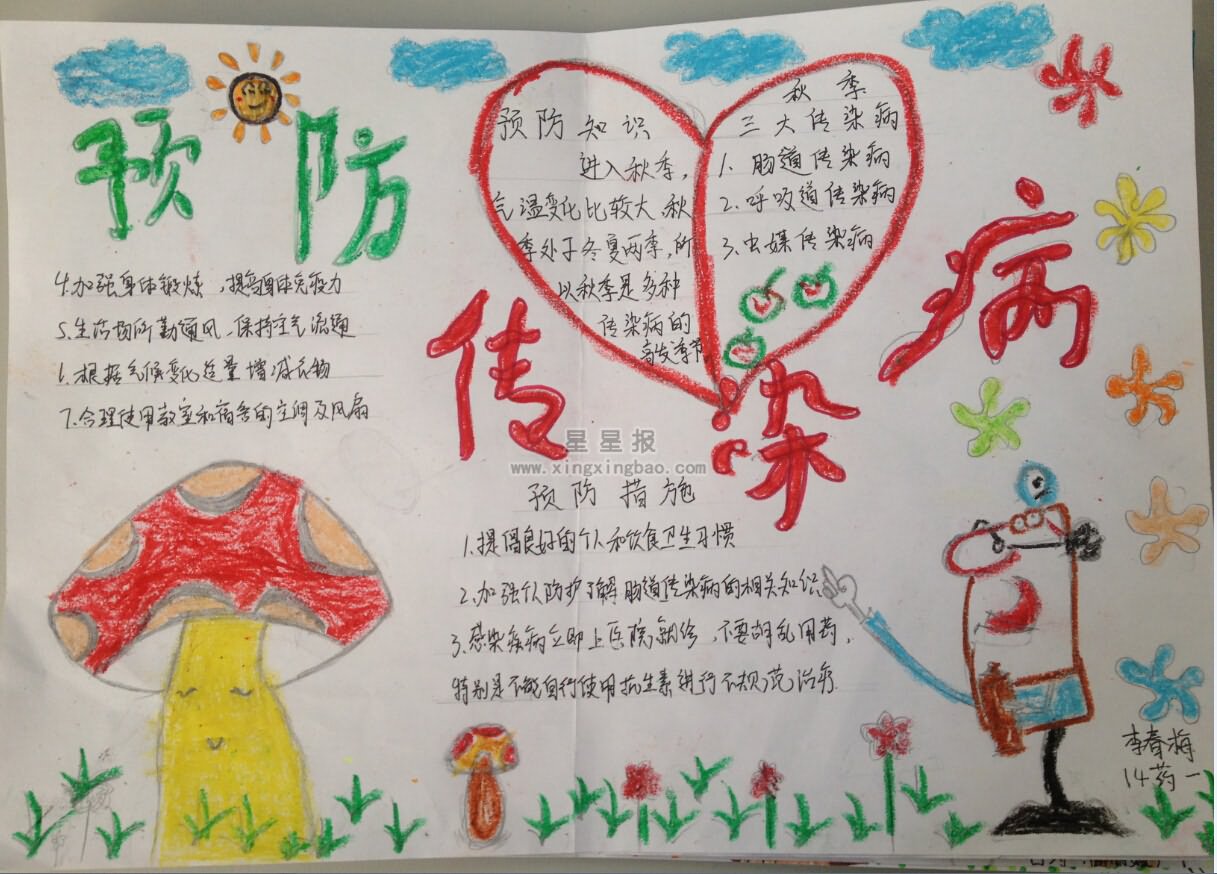 预防
传染病
预防知识
进入秋季,
气温变化比较大,秋
季处于冬夏两季,所
以秋季是多种
传染病的
高发季节
秋季
三大传染病
1. 肠道传染病
2. 呼吸道传染病
3. 虫媒传染病
预防措施
1.提倡良好的个人和饮食卫生习惯
2.加强个人防护了解肠道传染病的相关知识
3.感染疾病立即上医院就诊,不要胡乱用药,
特别是不能自行使用抗生素进行不规范治疗
4.加强身体锻炼,提高自身体免疫力
5.生活场所勤通风,保持空气流通
6.根据气候变化适量增减衣物
7.合理使用教室和宿舍的空调及风扇
星星报
www.xingxingbao.com
李春梅
14药一